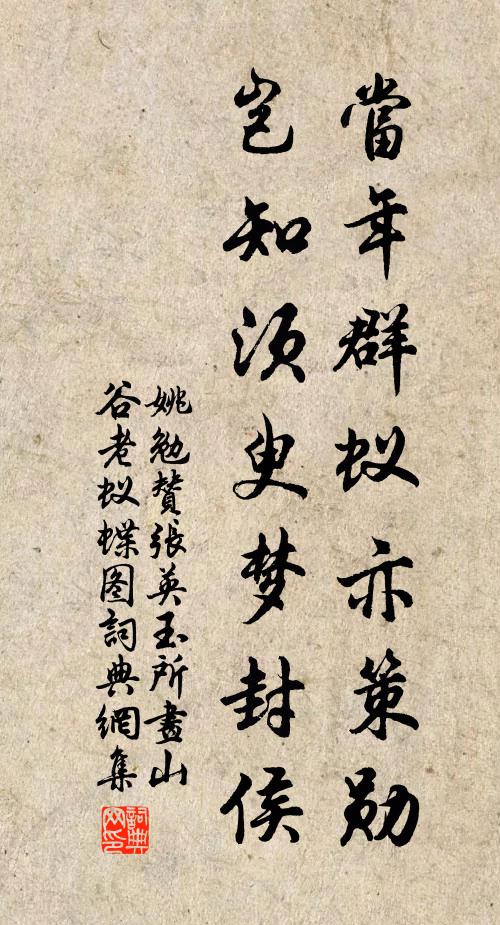 當年群蚁亦策勋
岂知须臾梦封侯
姚勉赞張英玉所畫山
谷老蚁蝶图詞典網集
詞典网印